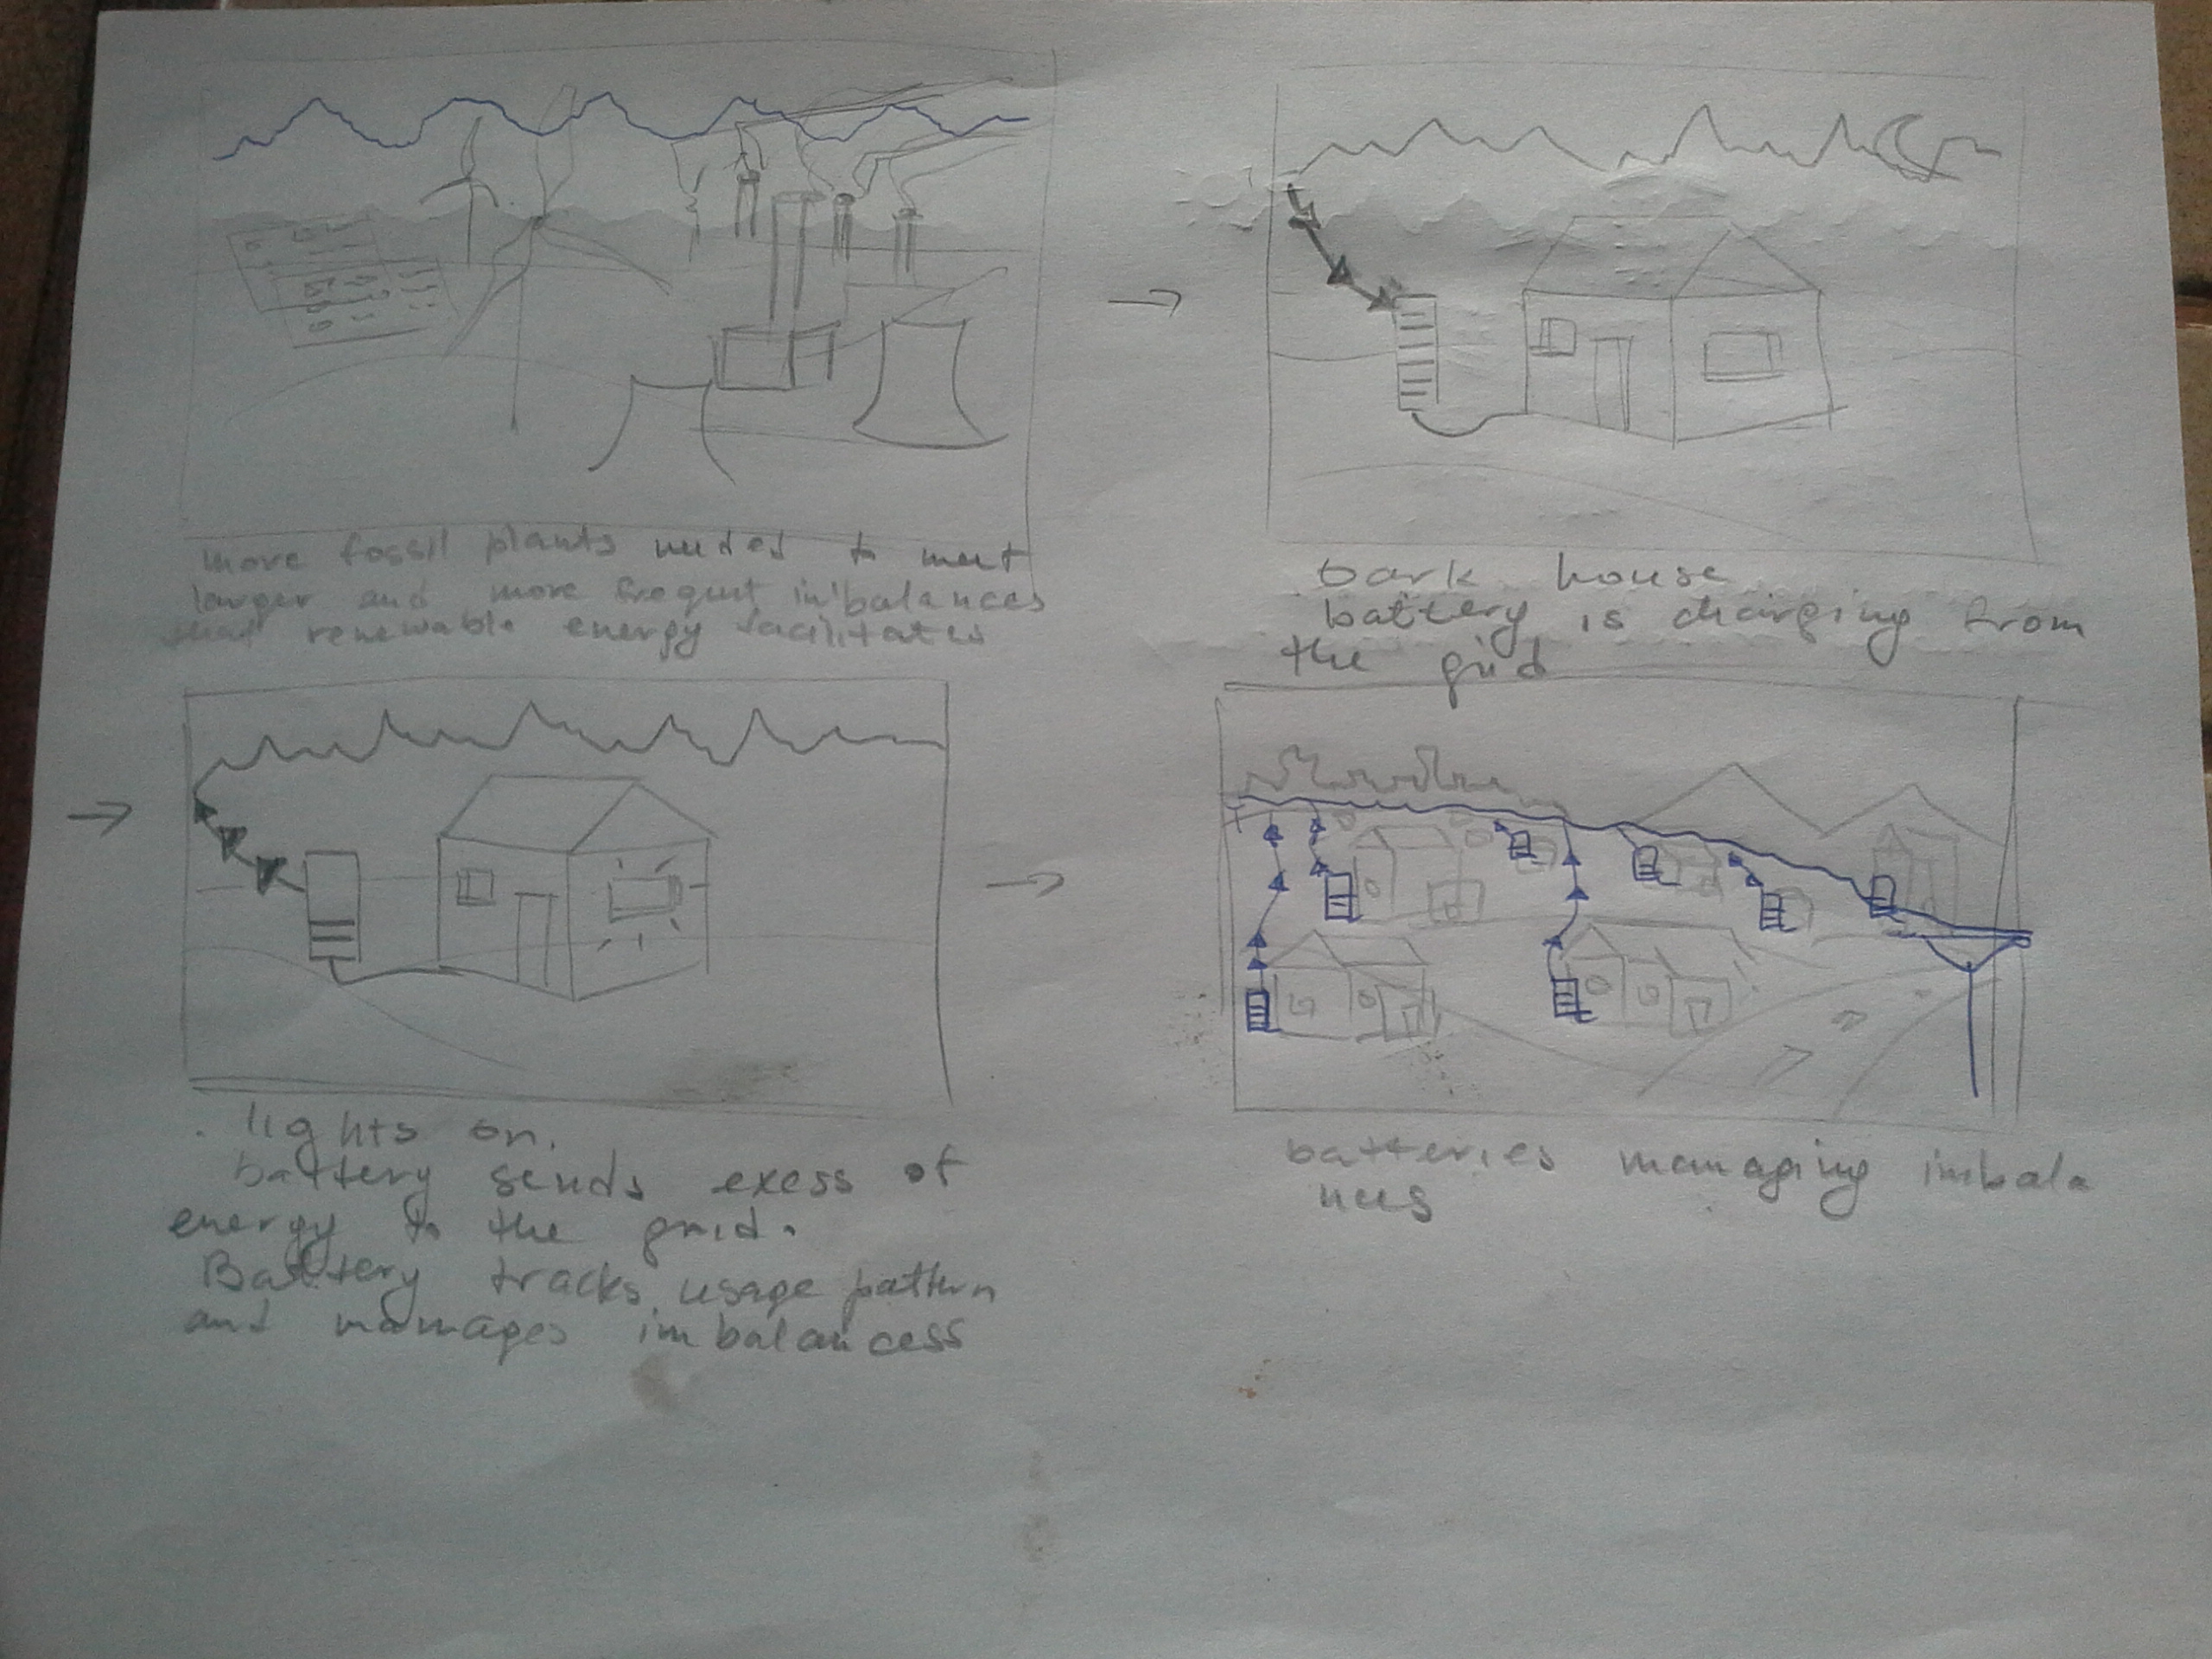 more fossil plants needed to meet
larger and more frequent imbalances
that renewable energy facilitates
Dark house
battery is charging from
the grid
. lights on.
battery sends exess of
energy to the grid.
Battery tracks usage pattern
and manages imbalancess
batteries managing imbala
nces